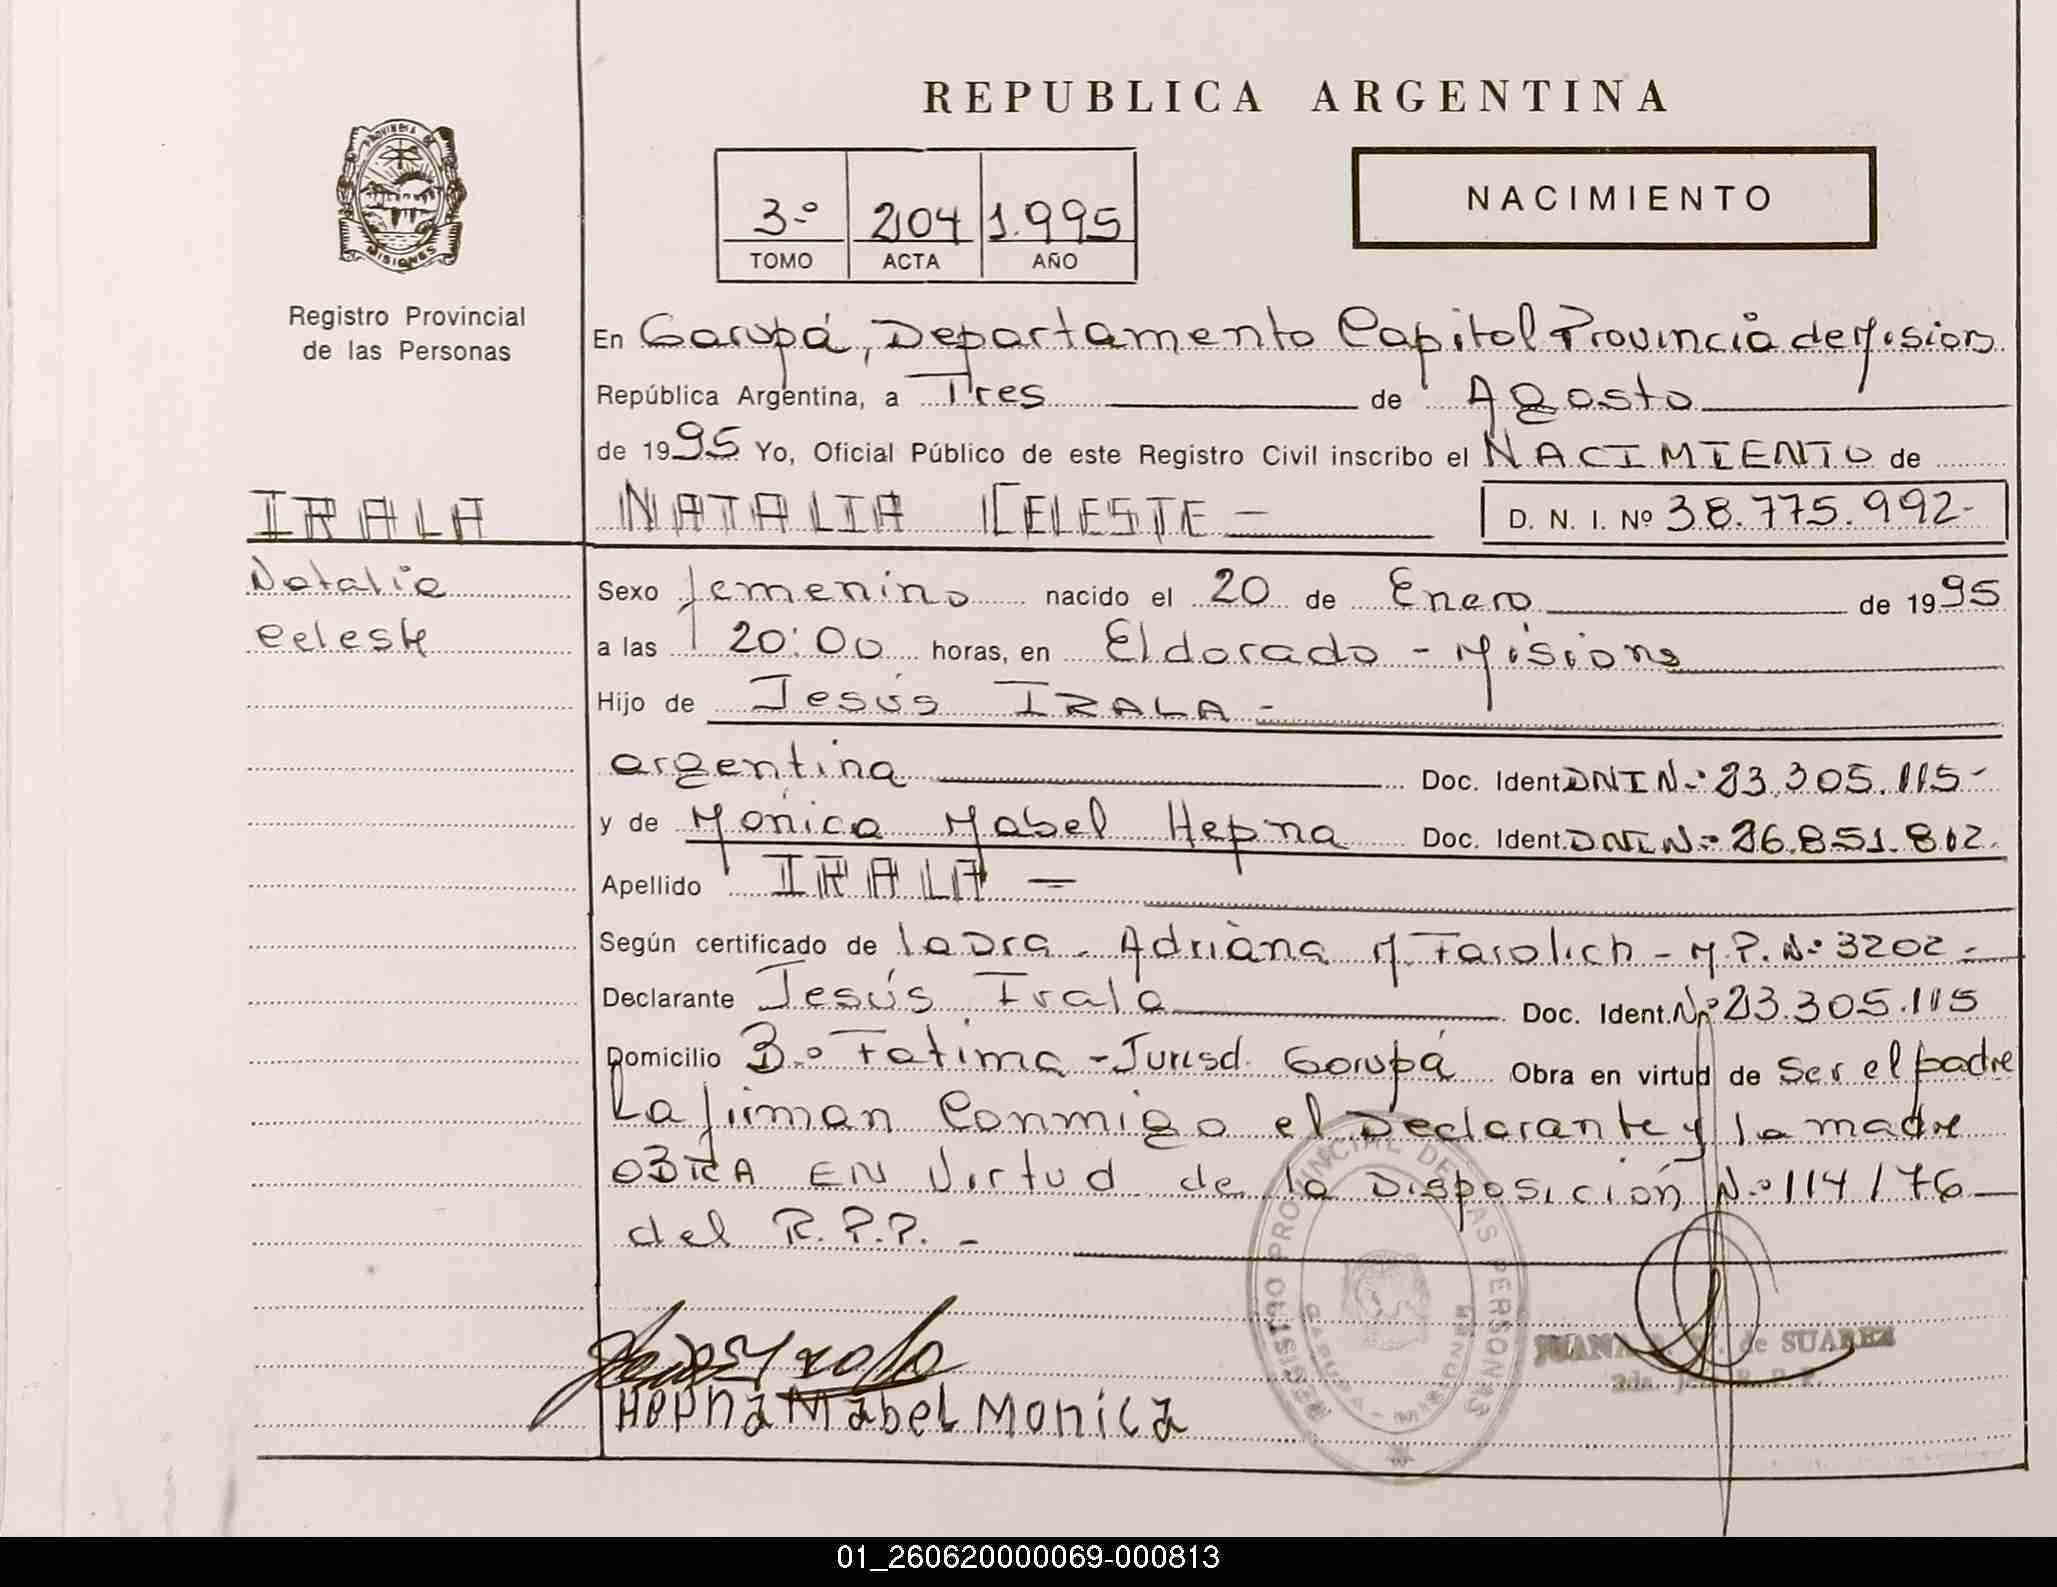 REPUBLICA ARGENTINA
PROVINCIA DE
MISIONES
Registro Provincial
de las Personas
3.º 204 1.995
TOMO ACTA AÑO
NACIMIENTO
En Garupá, Departamento Capital Provincia de Misions
República Argentina, a Tres de Agosto
de 1995 Yo, Oficial Público de este Registro Civil inscribo el NACIMIENTO de
IRALA NATALIA CELESTE - D. N. I. Nº 38.775.992-
Natalia
Celeste
Sexo femenino nacido el 20 de Enero de 1995
a las 20:00 horas, en Eldorado - Misions
Hijo de Jesús IRALA -
argentina Doc. Ident. DNI N.º 23.305.115-
y de Mónica Mabel Hepna Doc. Ident. DNI N.º 26.851.812.
Apellido IRALA -
Según certificado de la Dra. Adriana M. - M.P. N.º 3202 -
Declarante Jesús Irala Doc. Ident. Nº 23.305.115
Domicilio B.º Fatima - Jurisd. Garupá Obra en virtud de Ser el padre
La firman Conmigo el Declarante y la madre
OBRA EN Virtud de la Disposición N.º 114/76
del R.P.P. -
Hepna Mabel Monica
REGISTRO PROVINCIAL DE LAS PERSONAS
GARUPA - MISIONES
JUANA de SUAREZ
01_260620000069-000813